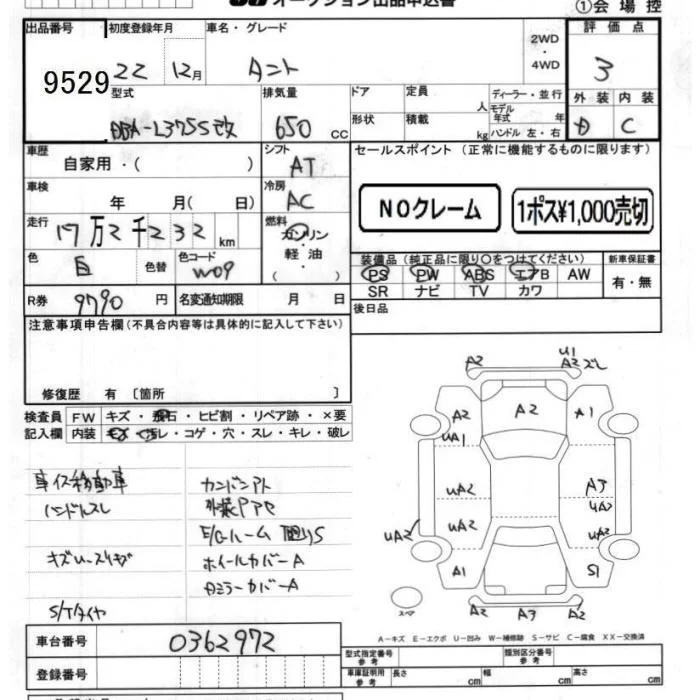 オークション出品申込書
①会場控
出品番号 9529
初度登録年月 22 12月
車名・グレード タント
2WD・4WD
評価点 3
外装 内装 C
型式 DBA-L375S改
排気量 650 cc
ドア 形状
定員 人 積載 kg
ディーラー・並行
モデル年式 年式
ハンドル 左・右
車歴 自家用・( )
シフト AT
セールスポイント (正常に機能するものに限ります)
NOクレーム
1ポス¥1,000売切
車検 年 月( 日)
冷房 AC
走行 17万2千232 km
燃料 ガソリン・軽油・( )
色 白 色替
色コード W09
装備品 (純正品に限り○をつけてください)
PS PW ABS エアB AW
SR ナビ TV カワ
新車保証書 有・無
R券 9790 円
名変通知期限 月 日
後日品
注意事項申告欄 (不具合内容等は具体的に記入して下さい)
修復歴 有 〔箇所 〕
検査員記入欄
FW キズ・飛石・ヒビ割・リペア跡・×要
内装 キズ・汚レ・コゲ・穴・スレ・キレ・破レ
車イス移動車
ハンドルスレ
S/Tタイヤ
カンバンアト
E/Gルーム
ホイールカバーA
ミラーカバーA
A2 U1
A2 ズレ
A2 A2 A1
UA1
UA2 AJ
UA2
UA2 UA2 UA2
A1 S1
スペア
A2 A3 A2
A-キズ E-エクボ U-凹み W-補修跡 S-サビ C-腐食 XX-交換済
車台番号 0362972
登録番号
型式指定番号 参考
類別区分番号 参考
車庫証明用 参考 長さ cm 幅 cm 高さ cm